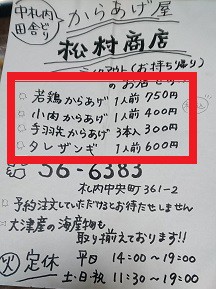 中札内
田舎どり
からあげ屋
松村商店
(お持ち帰り)
のお店です
若鶏からあげ 1人前 750円
小肉からあげ 1人前 400円
手羽先からあげ 3本入 300円
タレザンギ 1人前 600円
56-6383
札内中央町361-2
予約注文していただけるとお待たせしません
大津産の海産物も
取り揃えております!
火 定休 平日 14:00~19:00
土・日・祝 11:30~19:00